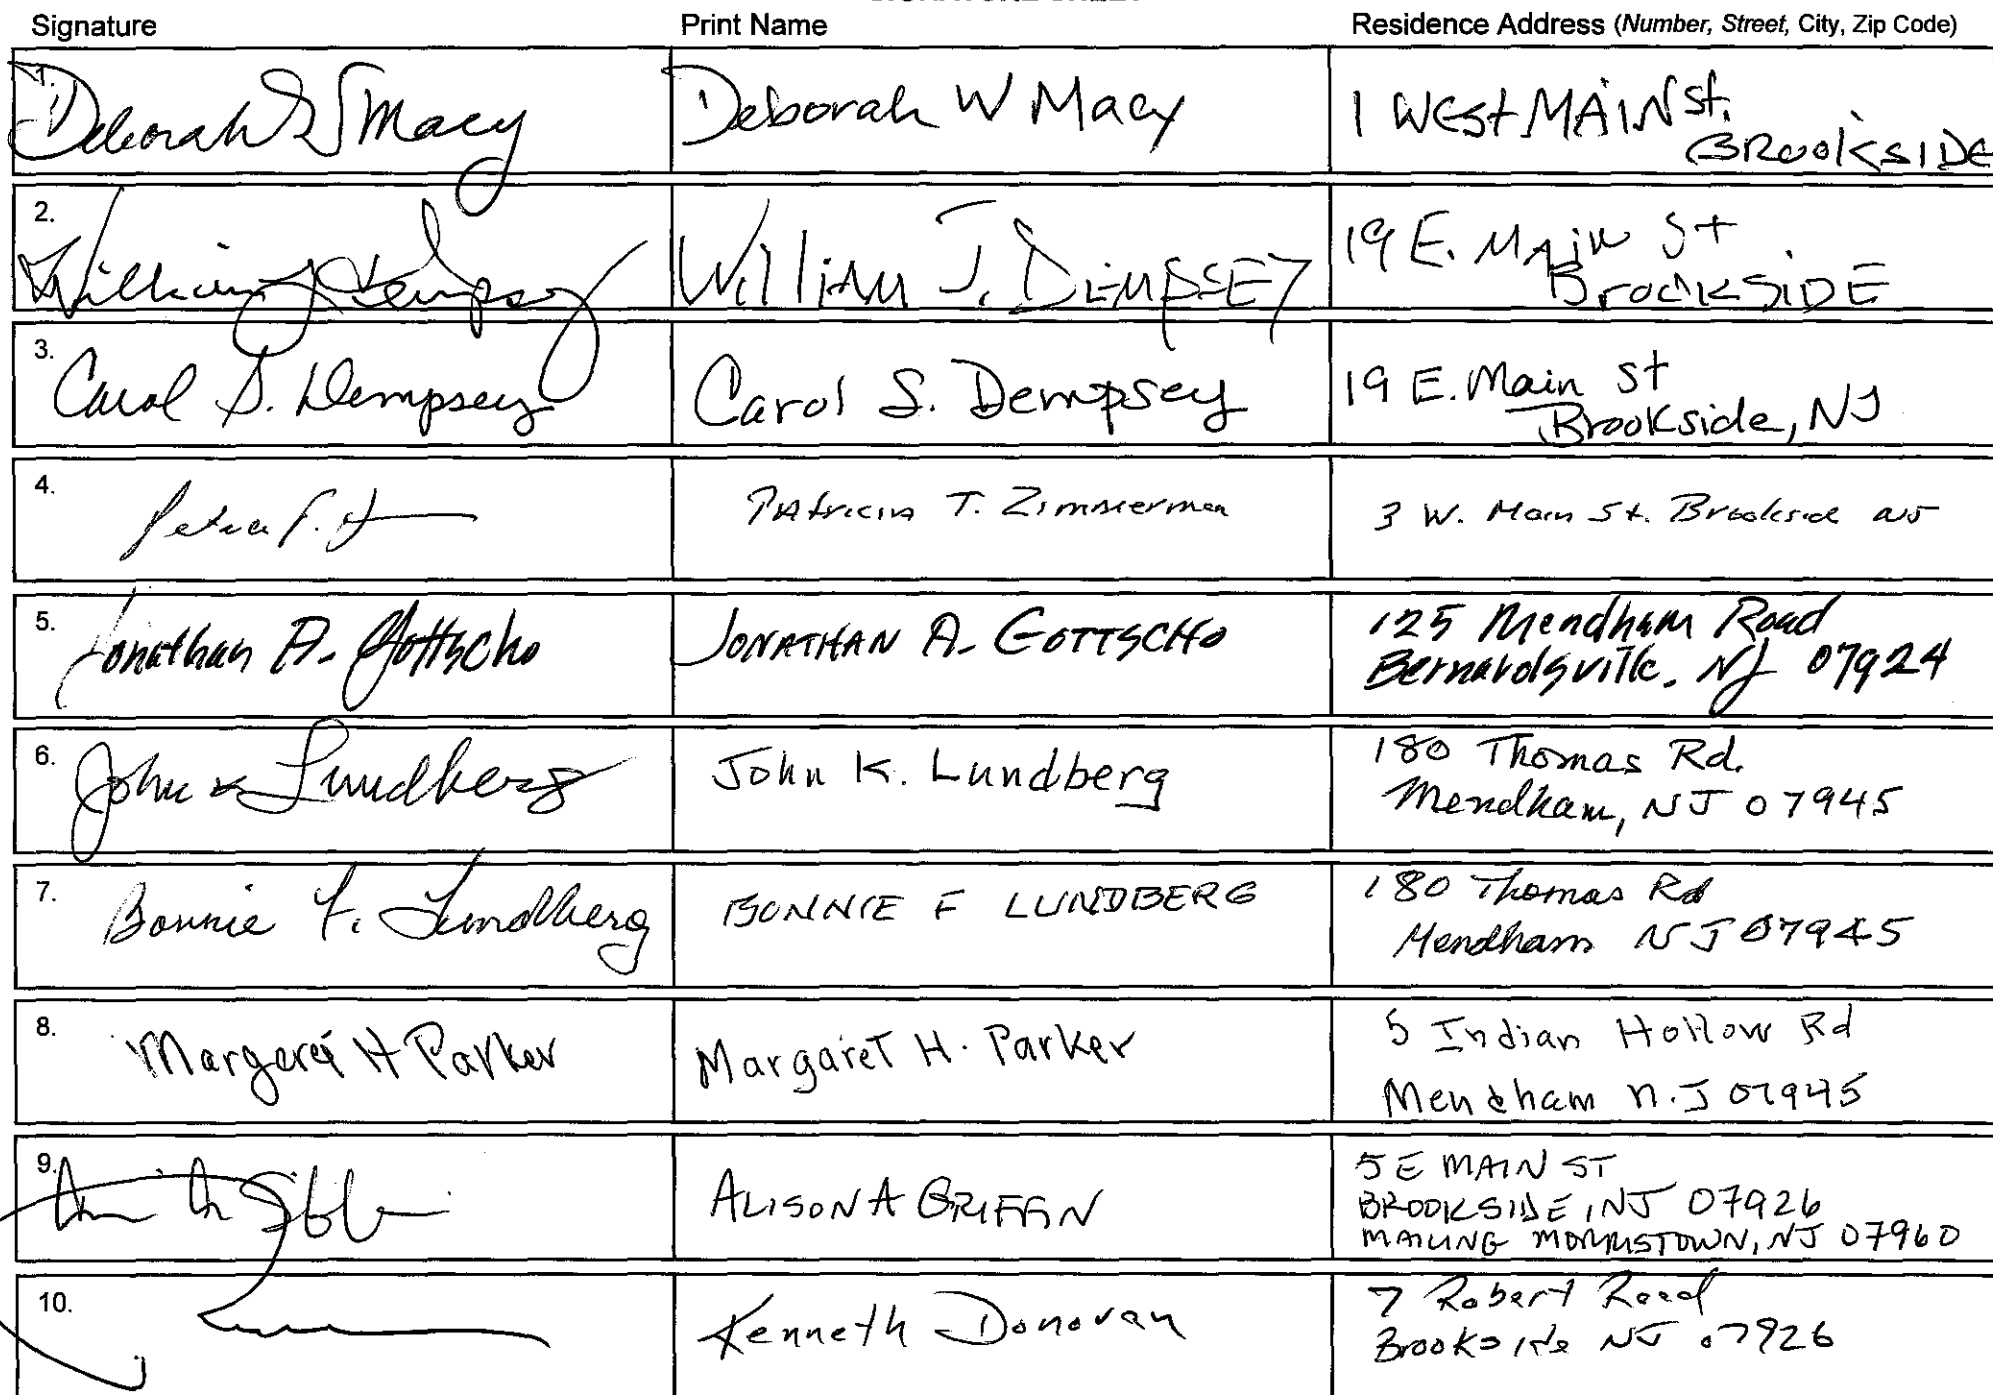 Signature Print Name Residence Address (Number, Street, City, Zip Code)
1. Deborah W Macy Deborah W Macy 1 West MAIN St.
BROOKSIDE
2. William J Dempsey William J. DEMPSEY 19 E. MAIN St
BrookSIDE
3. Carol S. Dempsey Carol S. Dempsey 19 E. Main St
Brookside, NJ
4. Patricia T. Zimmerman 3 W. Main St. Brookside NJ
5. Jonathan A. Gottscho JONATHAN A. GOTTSCHO 125 Mendham Road
Bernardsville, NJ 07924
6. John K Lundberg John K. Lundberg 180 Thomas Rd.
Mendham, NJ 07945
7. Bonnie F. Lundberg BONNIE F LUNDBERG 180 Thomas Rd
Mendham NJ 07945
8. Margaret H Parker Margaret H. Parker 5 Indian Hollow Rd
Mendham N.J 07945
9. ALISON A GRIFFIN 5 E MAIN ST
BROOKSIDE, NJ 07926
MAILING MORRISTOWN, NJ 07960
10. Kenneth Donovan 7 Robert Road
Brookside NJ 07926